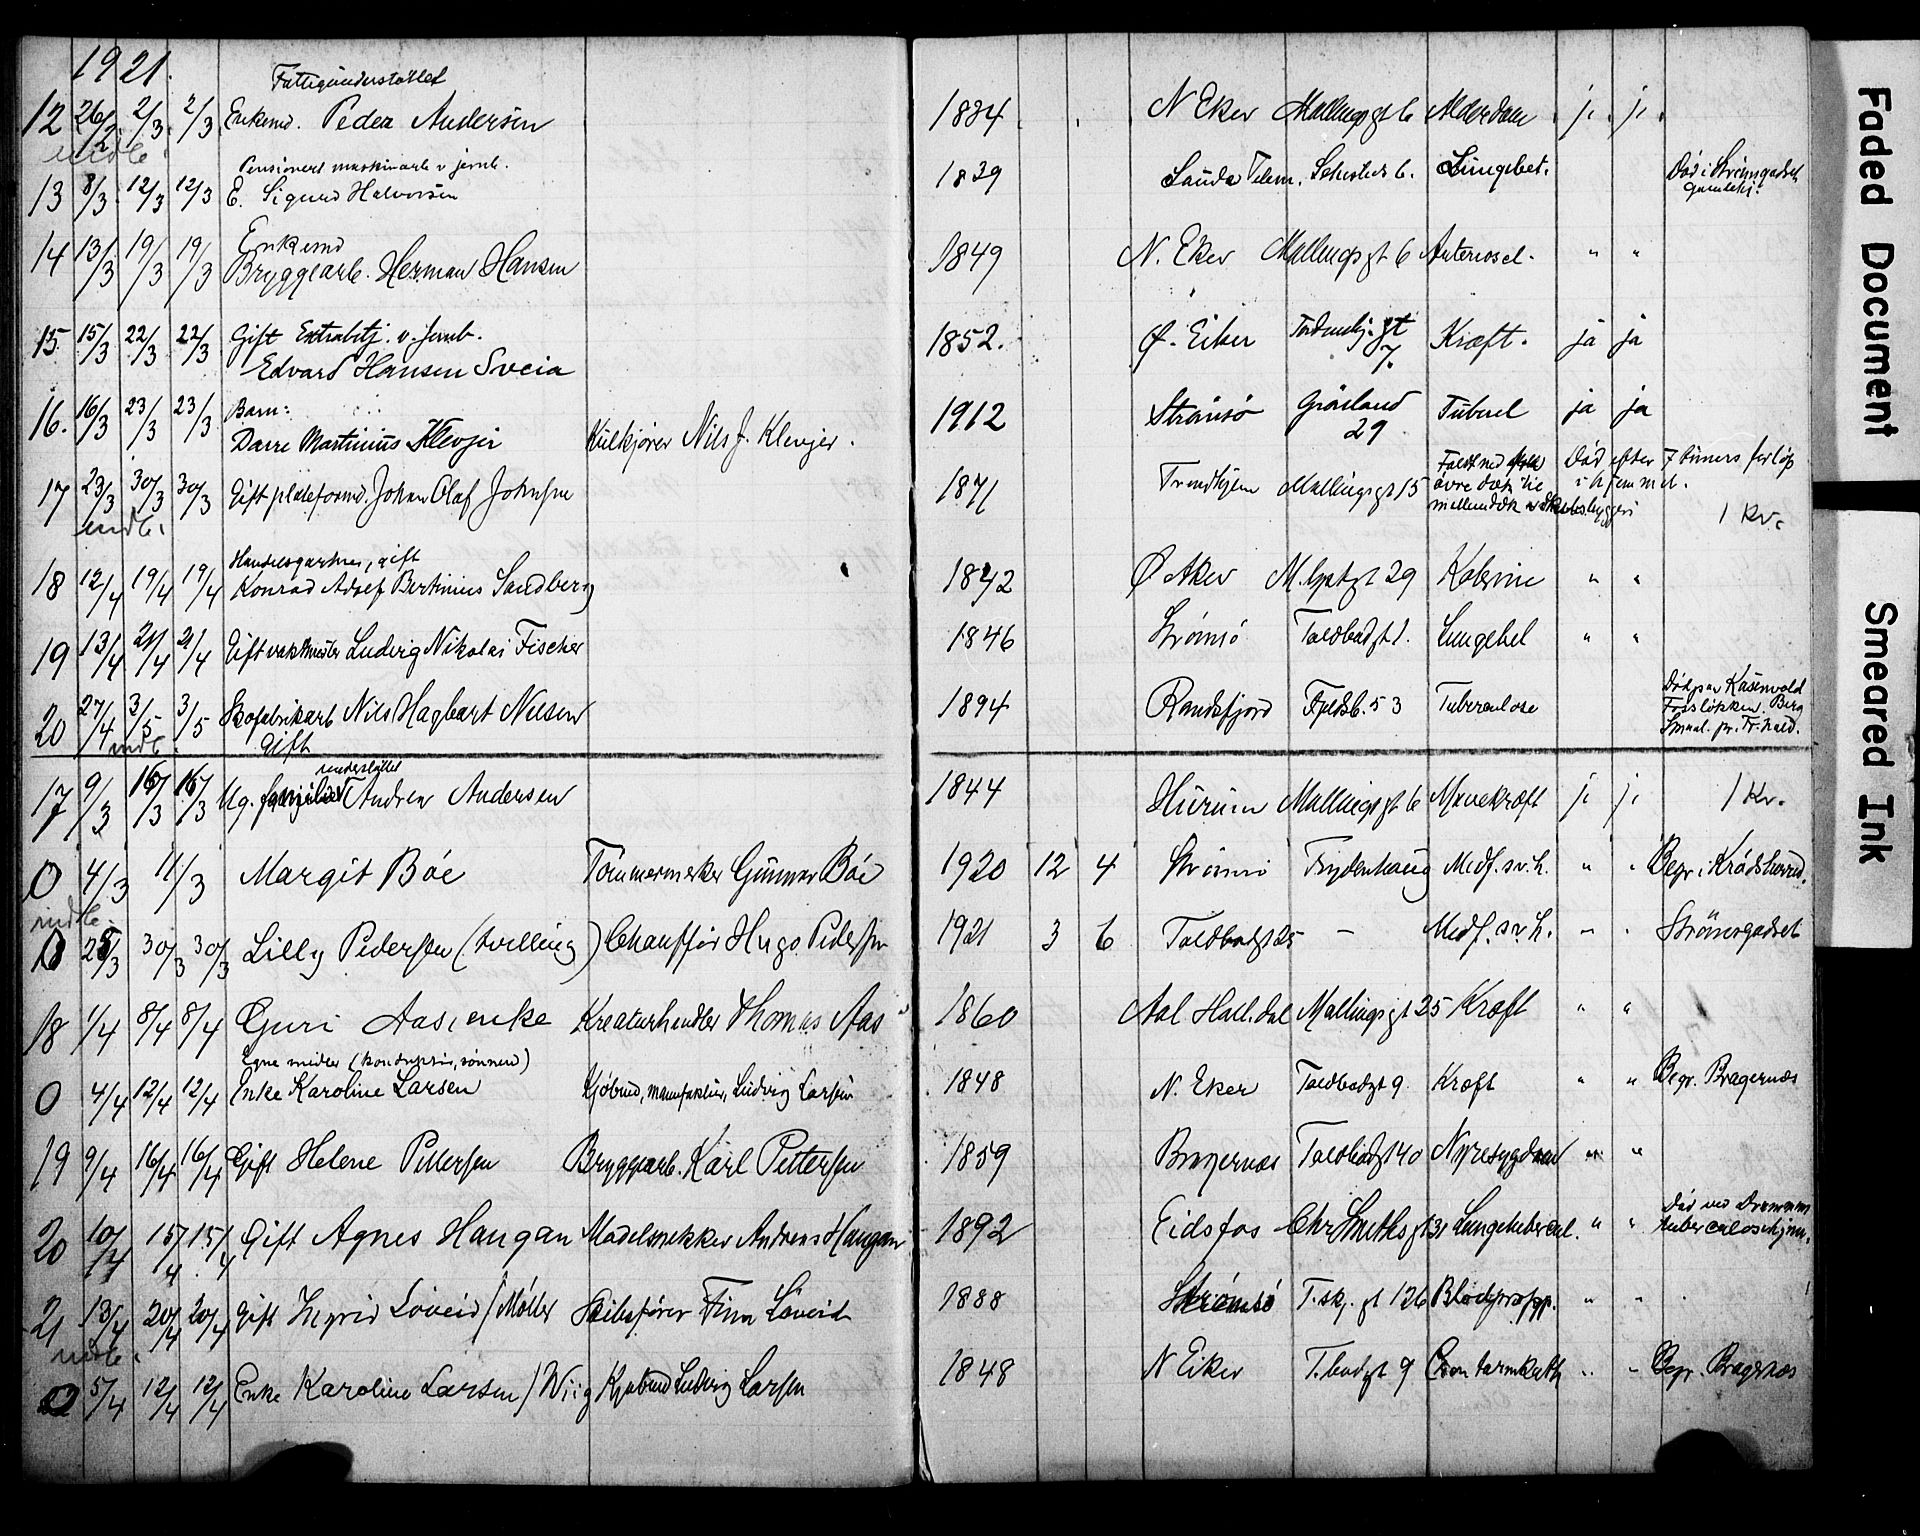 1921.
Fattigunderstøttet
12 26/2 2/3 2/3 Enkemd. Peder Andersen 1834 N Eker Mallingsgt 6 Alderdom ja ja
indb.
Pensionert maskinarb v jernb.
13 8/3 12/3 12/3 E. Sigurd Halvorsen 1839 Sauda Telem. Lungebet. Død i Strømsgodset
14 13/3 19/3 19/3 Enkemd
Bryggearb. Herman Hansen 1849 N. Eker Mallingsgt 6 Arterioscl. " "
15 15/3 22/3 22/3 Gift Extrabetj. v. Jernb. 1852. Ø. Eiker Tordenskj. gt 7. Kræft. ja ja
Edvard Hansen Sveia
16. 16/3 23/3 23/3 Barn: 1912 Strømsø Grønland 29 Tuberl ja ja
Darre Martinius Klevjer Kulkjører Nils J. Klevjer.
17 23/3 30/3 30/3 Gift plateformd. Johan Olaf Johnsen 1871 Trondhjem Mallingsgt 15 Faldt ned øvre dæk til mellemdæk Død efter 7 timers forløp i hjemmet.
indb. 1 Kr.
Handelsgartner, gift
18 12/4 19/4 19/4 Konrad Adolf Bertinius Sandberg 1842 Ø Aker 29 " "
19 13/4 21/4 21/4 Gift vaktmester Ludvig Nikolai Fischer 1846 Strømsø Toldbodgt 1. Lungebet " "
20 27/4 3/5 3/5 Skofabrikarb Nils Hagbart Nilsen 1894 Randsfjord Fjeldsb. 53 Tuberculose
indb. Gift
understøttet
17 9/3 16/3 16/3 Ug. Andrea Andersen 1844 Hurum Mallingsgt 6 Mavekræft ja ja 1 Kr.
0 4/3 11/3 Margit Bøe Tømmermerker Gunnar Bøe 1920 12 4 Strømsø Frydenhaug Medf. sv.h. " " Begr. i Krødsherred.
indb.
0 25/3 30/3 30/3 Lilly Pedersen (tvilling) Chauffør Hugo Pedersen 1921 3 6 Toldbodgt 25 — Medf. sv. h. " " Strømsgodset
18 1/4 8/4 8/4 Guri Aas, enke Kreaturhandler Thomas Aas 1860 Aal Hall.dal Mallingsgt 25 Kræft " "
Egne midler (konduktør, sønnen)
0 4/4 12/4 12/4 Enke Karoline Larsen Kjøbmd, manufaktur, Ludvig Larsen 1848 N. Eker Toldbodgt 9. Kræft " " Begr. Bragernæs
19 9/4 16/4 16/4 Gift Helene Pettersen Bryggearb. Karl Pettersen 1859 Bragernæs Toldbodgt 40 Nyresygdom " "
20 10/4 15/4 15/4 Gift Agnes Haugan Modelsnekker Andreas Haugan 1892 Eidsfos Chr Smithsgt 31 Lungetubercul. " " Død ved Drammens tuberculosehjem.
21 13/4 20/4 20/4 Gift Ingrid Løveid / Møller Skibsfører Finn Løveid 1888 Strømsø T.skj. gt 126 Blodpropp. " "
indb.
0 5/4 12/4 12/4 Enke Karoline Larsen / Wiig Kjøbmd Ludvig Larsen 1848 N Eiker T.bodgt 9 Cron tarmkath " " Begr. Bragernæs
Faded Document
Smeared Ink